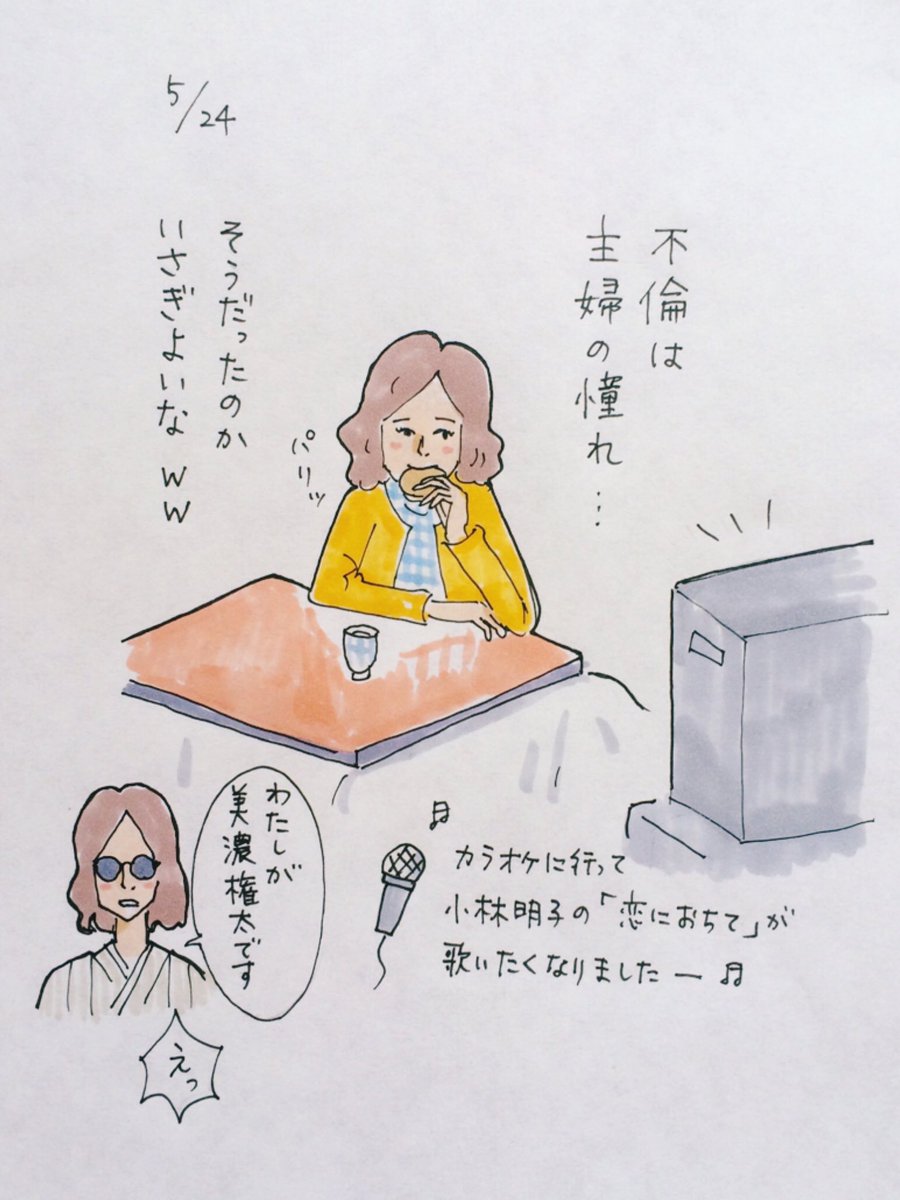 5/24
不倫は
主婦の憧れ…
そうだったのか
いさぎよいな ww
パリッ
わたしが
美濃権太です
えっ
カラオケに行って
小林明子の「恋におちて」が
歌いたくなりましたー♬